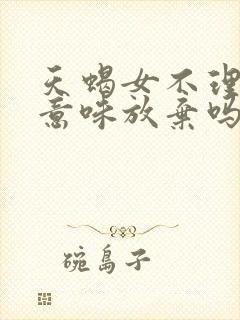 天蝎女不理
意味放弃吗
碗岛子